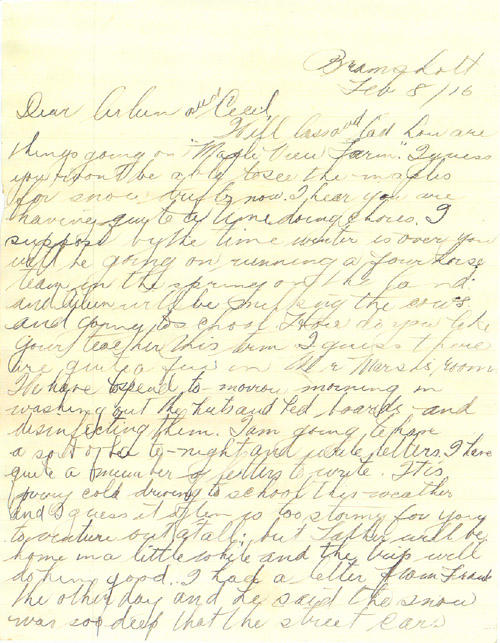 Bramshott
Feb 8/16
Dear Arlun and Cecil
Well lass and lad how are
things going on "Maple View Farm". I guess
you wont be able to see the maples
for snow drifts now. I hear you are
having quite a time doing chores. I
suppose by the time winter is over you
will be going on running a four horse
team in the spring on the land
and will be milking the cows
and going to school. How do you like
your teacher this term I guess there
are quite a few in Mr Marsh's room
We have to spend to-morrow morning in
washing out the huts and bed boards and
disinfecting them. I am going to have
a to-night and write letters. I have
quite a number of letters to write. It is
pretty cold driving to school this weather
and I guess it often is too stormy for you
to venture out at all; but Father will be
home in a little while and the trip will
do him good. I had a letter from Frank
the other day and he said the snow
was so deep that the street cars